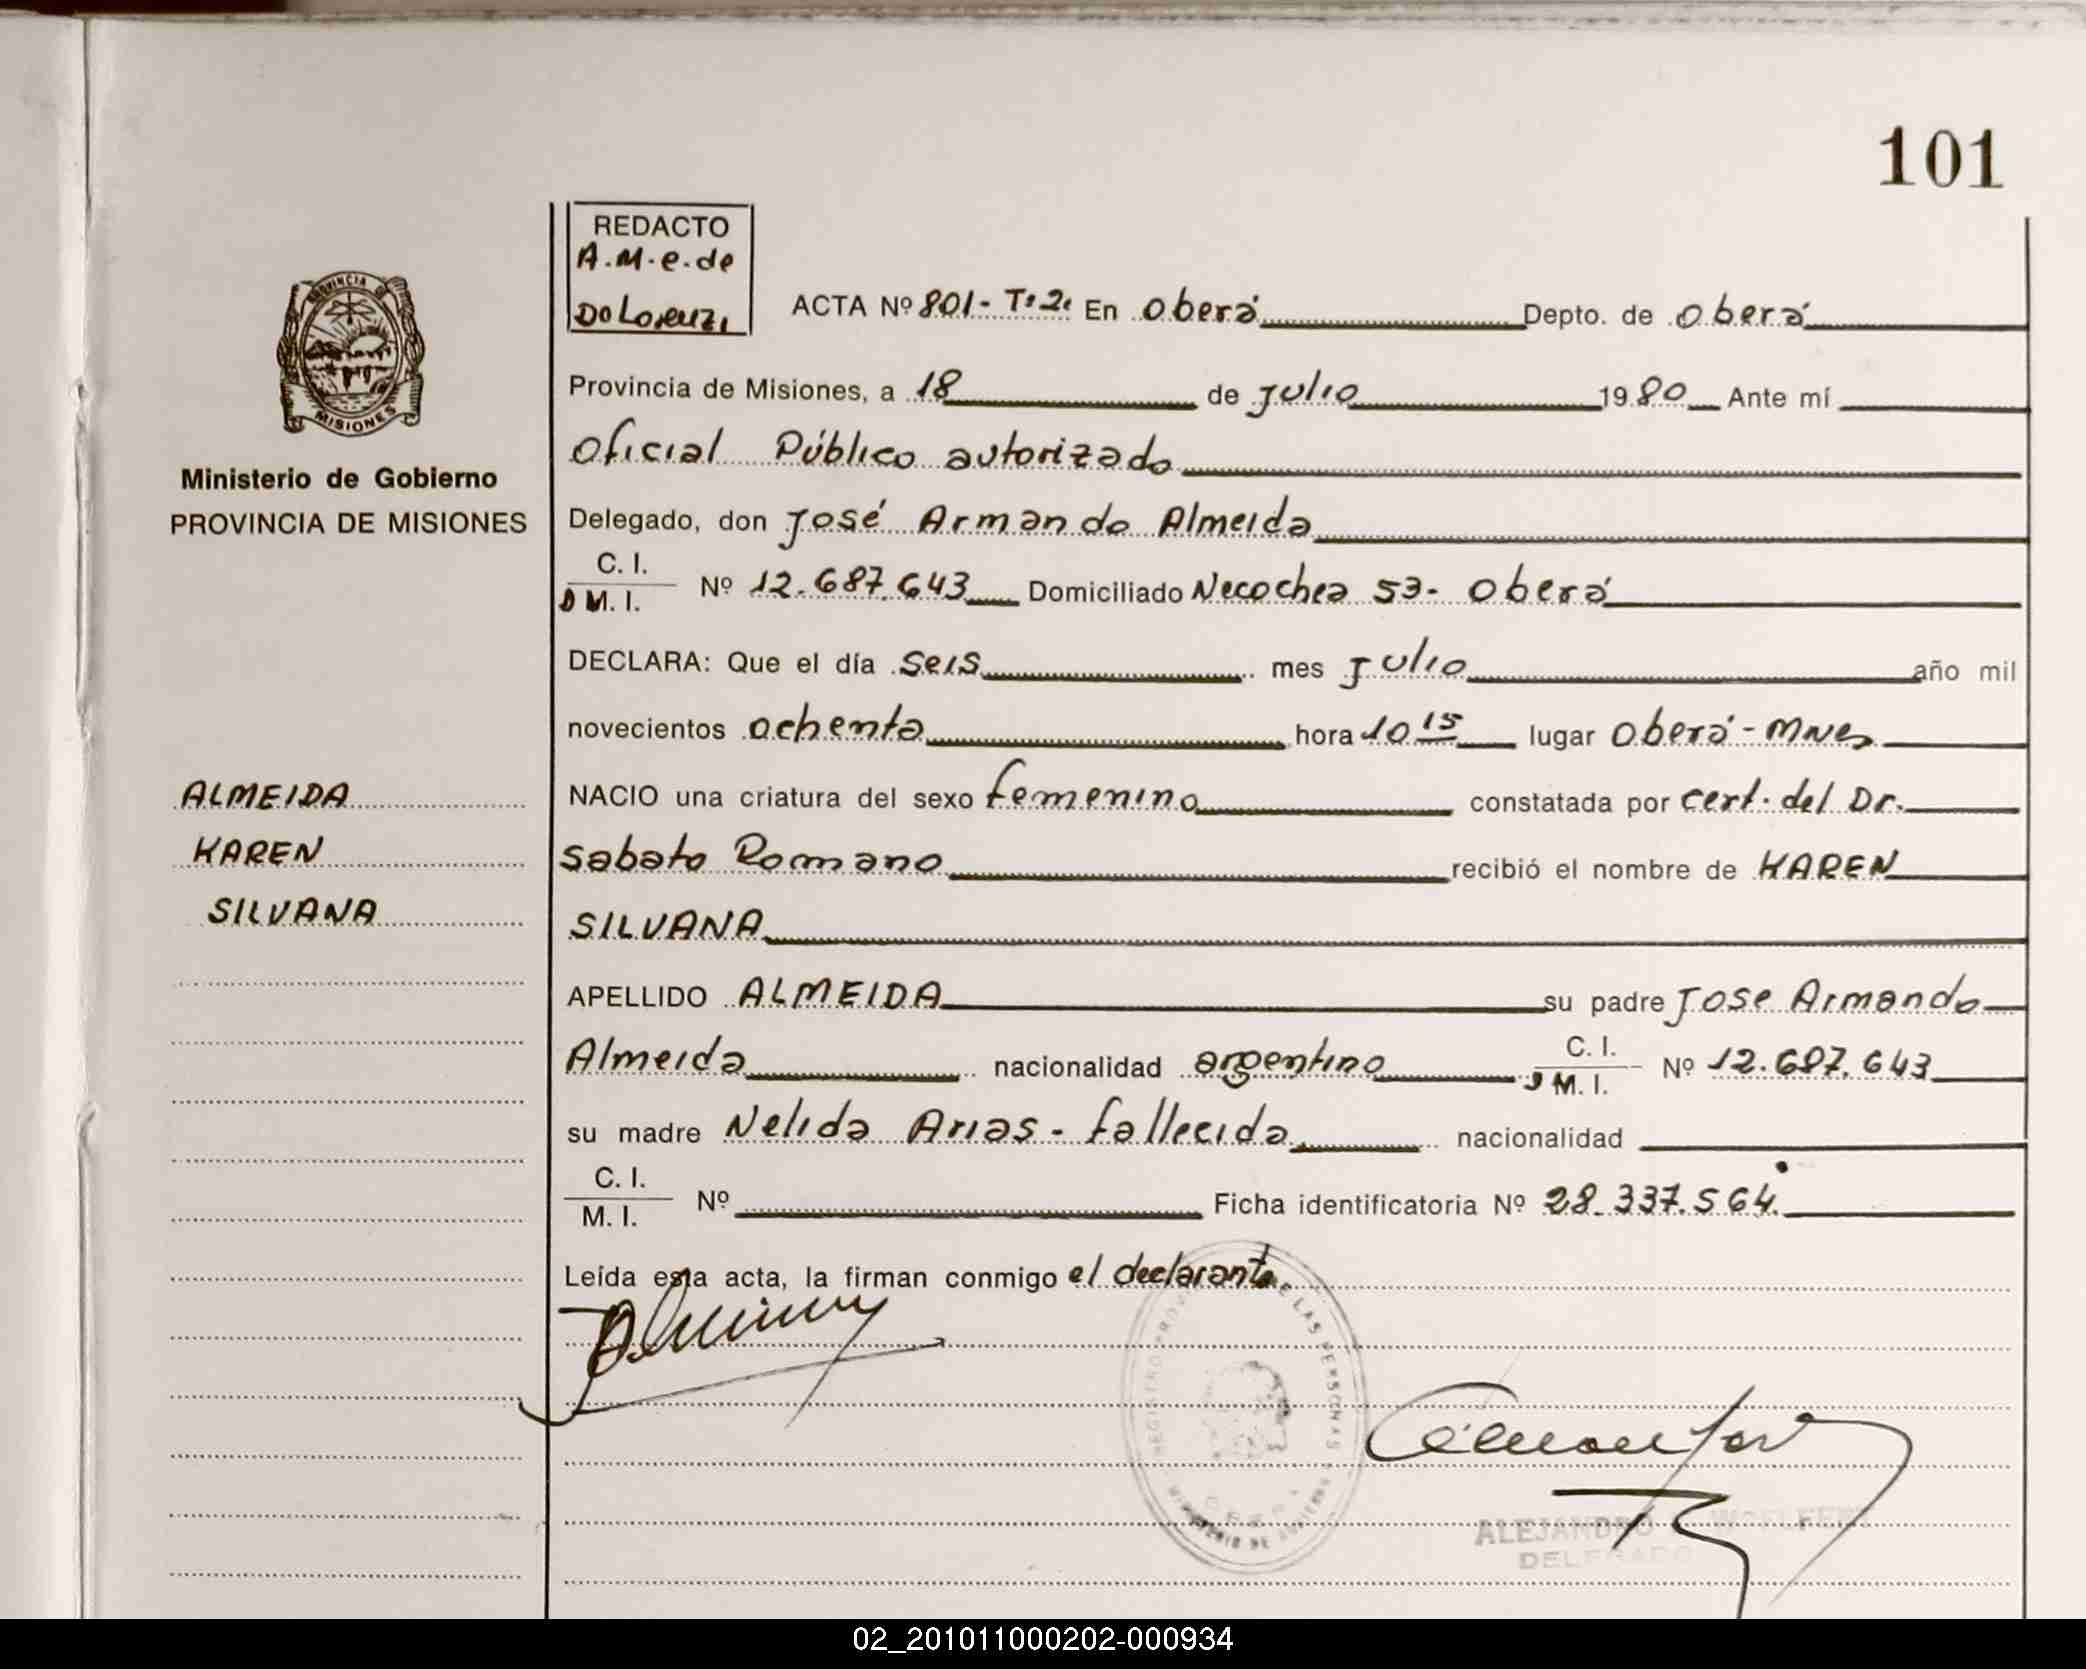 101
REDACTO
A.M.e.de
Do Lorenzi
ACTA Nº 801- Tº2º En Oberá Depto. de Oberá
PROVINCIA DE
MISIONES
Provincia de Misiones, a 18 de Julio 1980 Ante mí
Oficial Público autorizado
Ministerio de Gobierno
PROVINCIA DE MISIONES
Delegado, don José Armando Almeida
C. I.
D M. I. Nº 12.687.643 Domiciliado Necochea 53- Oberá
DECLARA: Que el día seis mes Julio año mil
novecientos ochenta hora 10 15 lugar Oberá - Mnes
ALMEIDA
KAREN
SILVANA
NACIO una criatura del sexo femenino constatada por cert. del Dr.
Sabato Romano recibió el nombre de KAREN
SILVANA
APELLIDO ALMEIDA su padre Jose Armando
Almeida nacionalidad argentino C. I.
D M. I. Nº 12.687.643
su madre Nelida Arias - fallecida nacionalidad
C. I.
M. I. Nº Ficha identificatoria Nº 28.337.564.
Leída esta acta, la firman conmigo el declarante
REGISTRO PROV DE LAS PERSONAS
MINISTERIO DE GOBIERNO
ALEJANDRO
DELEGADO
02_201011000202-000934